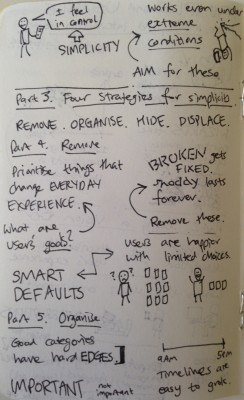 I feel
in control
SIMPLICITY
works even under
extreme
conditions
AIM for these
Part 3. Four Strategies for simplicity
REMOVE. ORGANISE. HIDE. DISPLACE.
Part 4. Remove
Prioritise things that
change EVERYDAY
EXPERIENCE.
What are
users goals?
BROKEN gets
FIXED.
Shoddy lasts
forever.
Remove these.
users are happier
with limited choices.
SMART
DEFAULTS
? ?
Part 5. Organise
Good categories
have hard EDGES.
IMPORTANT not
important
9AM 5PM
Timelines are
easy to grok.